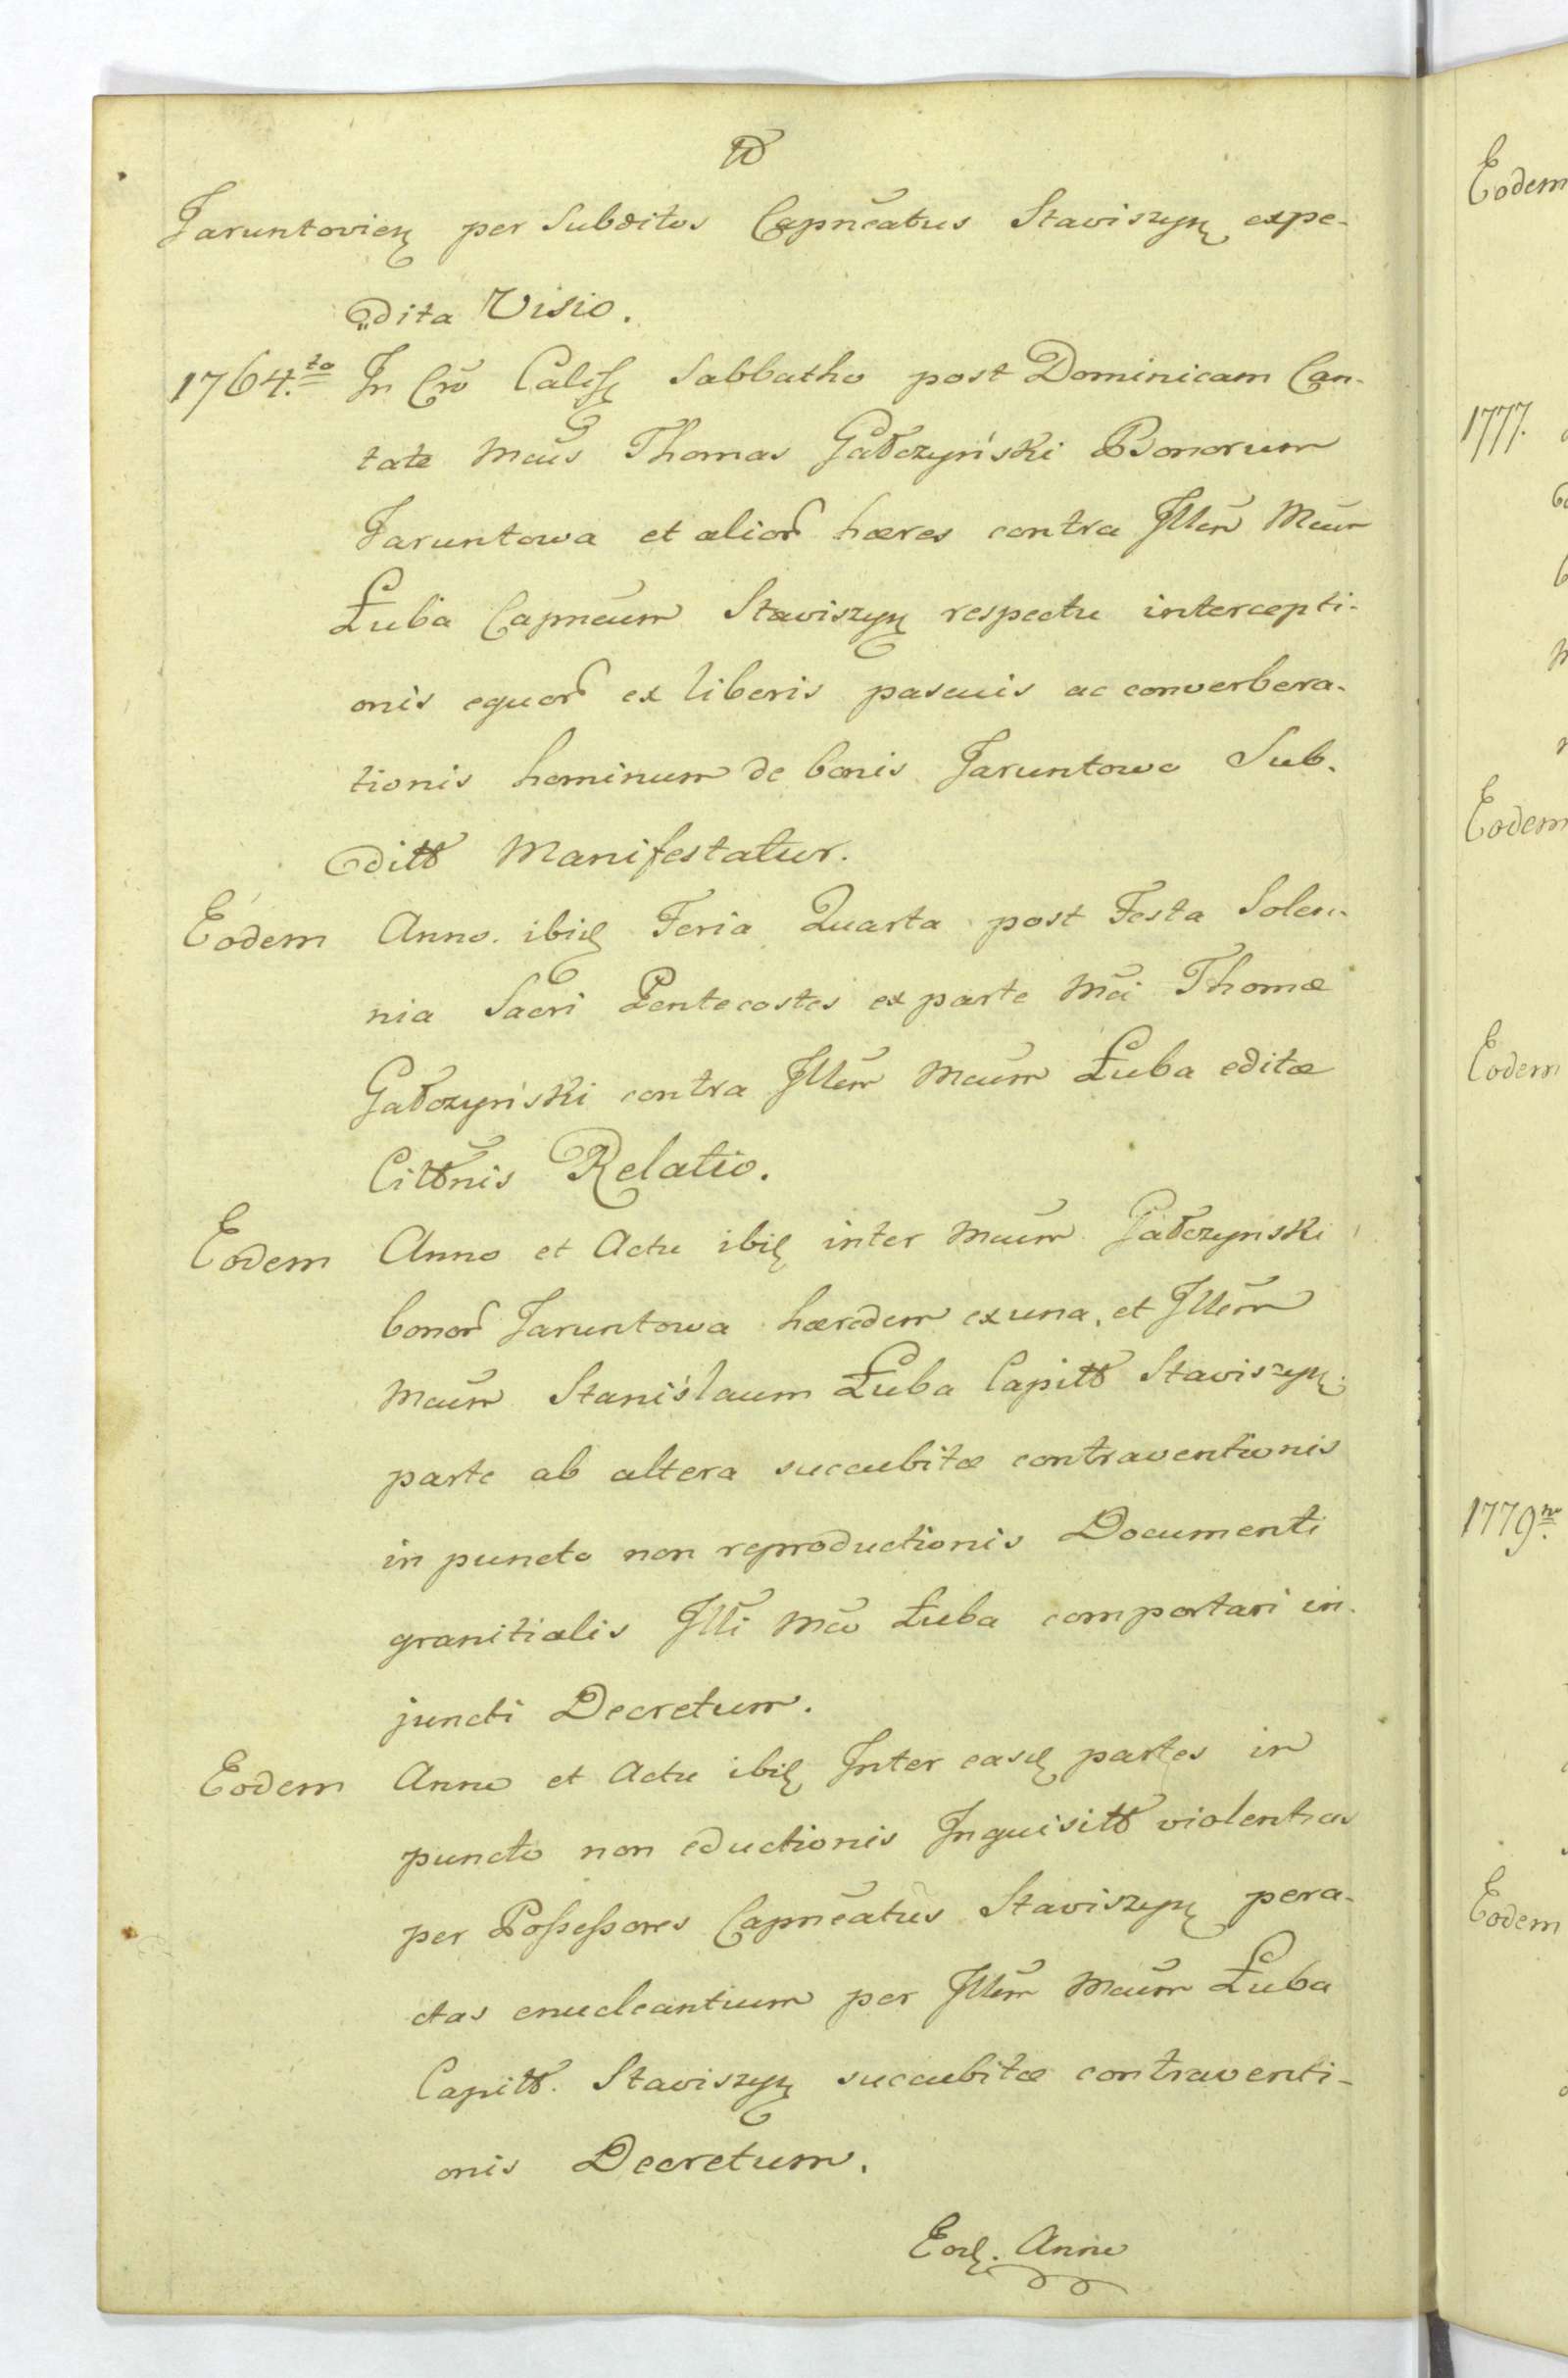 Jaruntovien per Subditos Capnēatus Staviszyn expe-
dita Visio.
1764.to In Crō Calis Sabbatho post Dominicam Can-
tate Mcus Thomas Gałczyński Bonorum
Jaruntowa et alior hæres contra Illm̄ Mcum
Łuba Capnēum Staviszyn respectu intercepti-
onis equor ex liberis pascuis ac converbera-
tionis hominum de bonis Jaruntowo Sub-
ditt Manifestatur.
Eodem Anno ibid Feria Quarta post Festa Solen-
nia Sacri Pentecostes ex parte Mci Thomæ
Gałczyński contra Illm̄ Mcum Łuba editæ
Cittnis Relatio.
Eodem Anno et Actu ibid inter Mcum Gałczynski
bonor Jaruntowa hæredem ex una, et Illm̄
Mcum Stanislaum Łuba Capitt Staviszyn
parte ab altera succubitæ contraventionis
in puncto non reproductionis Documenti
granitialis Illi Mco Łuba comportari in-
juncti Decretum.
Eodem Anno et Actu ibid Inter easd partes in
puncto non eductionis Inquisitt violentias
per Possessores Capnēatus Staviszyn pera-
ctas enucleantium per Illm̄ Mcum Łuba
Capitt. Staviszyn succubitæ contraventi-
onis Decretum.
Eod. Anno
Eodem
1777.
Eodem
Eodem
1779no
Eodem